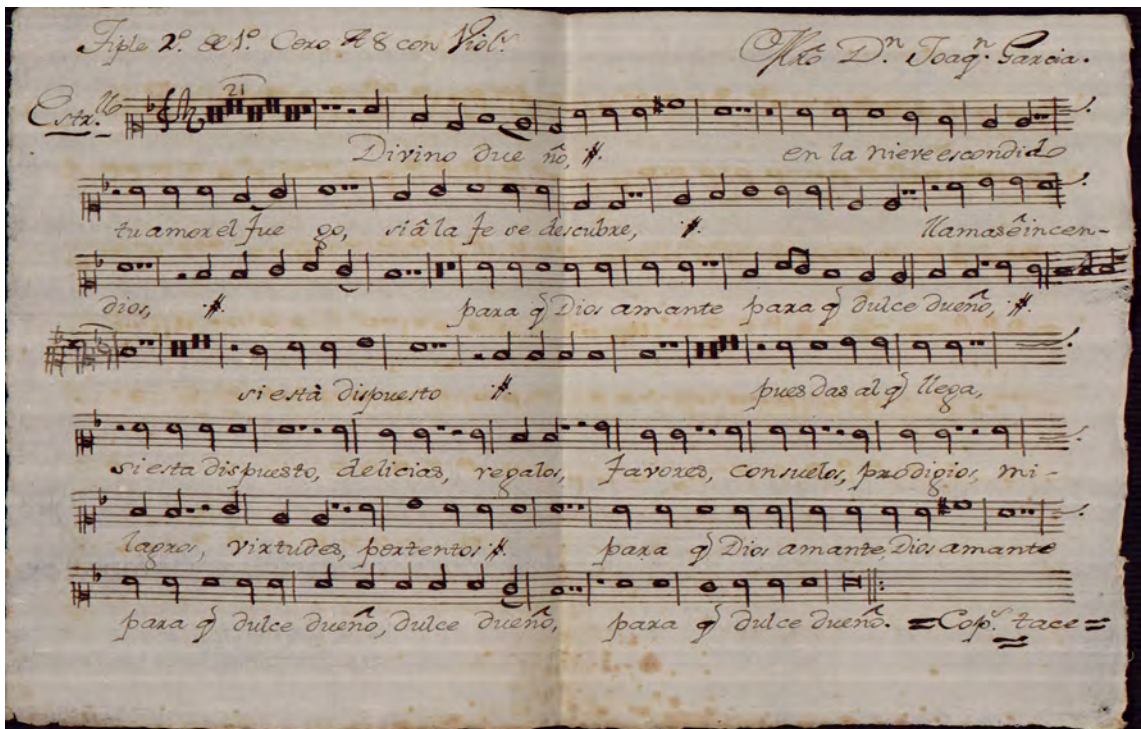 Tiple 2º. de 1º. Coro A 8 con Violˢ.
Mro Dⁿ. Joaqⁿ. Garcia.
Estrˡˡᵒ
21
Divino due ño, :‖: en la nieve escondido
tu amor el fue go, si â la fe se descubre, :‖: llamas ê incen-
dios, :‖: para q̃ Dios amante para q̃ dulce dueño, :‖:
si està dispuesto :‖: pues das al q̃ llega,
si esta dispuesto, delicias, regalos, favores, consuelos, prodigios, mi-
lagros, virtudes, portentos :‖: para q̃ Dios amante, Dios amante
para q̃ dulce dueño, dulce dueño, para q̃ dulce dueño. = Copˢ. tace =